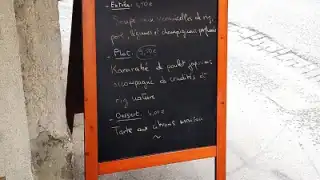 - Entrée:
Soupe aux vermicelles de riz,
porc, légumes et champignons parfumés
- Plat:
Karaage de poulet japonais
accompagné de crudités et
riz nature
- Dessert:
Tarte aux citrons maison
~